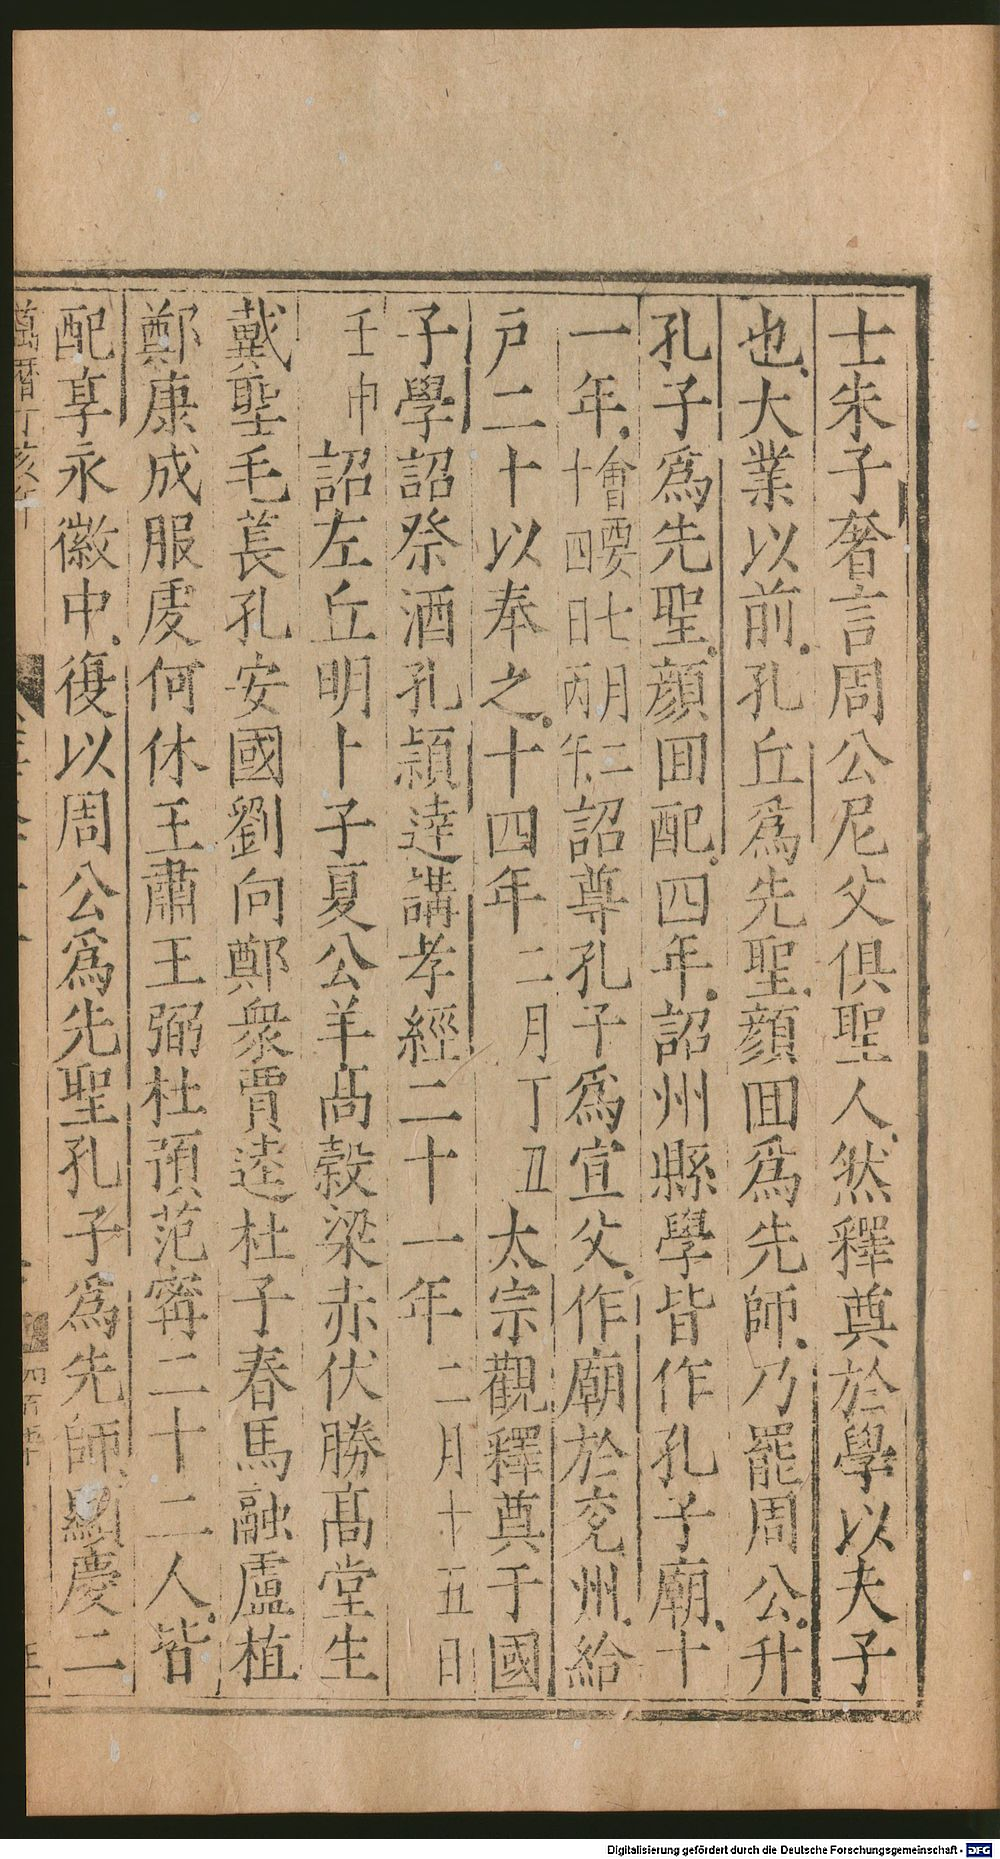 士朱子奢言周公尼父俱聖人然釋奠於學以夫子
也大業以前孔丘爲先聖顔回爲先師乃罷周公升
孔子爲先聖顔回配四年詔州縣學皆作孔子廟十
一年會要七月二十四日丙午詔尊孔子爲宣父作廟於兖州給
戸二十以奉之十四年二月丁丑太宗觀釋奠于國
子學詔祭酒孔頴逹講孝經二十一年二月十五日
壬申詔左丘明卜子夏公羊髙榖梁赤伏勝髙堂生
戴聖毛萇孔安國劉向鄭衆賈逵杜子春馬融盧植
鄭康成服虔何休王肅王弼杜預范寗二十二人皆
配享永徽中復以周公爲先聖孔子爲先師顯慶二
萬暦丁亥年
Digitalisierung gefördert durch die Deutsche Forschungsgemeinschaft - DFG